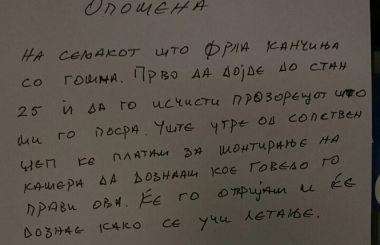 Опомена
На сељакот што фрла канчиња
со гомна. Прво да дојде до стан
25 и да го исчисти прозорецот што
ми го посра. Уште утре од сопствен
џеп ке платам за монтирање на
камера да дознаам кое говедо го
прави ова. Ќе го откријам и ќе
дознае како се учи летање.